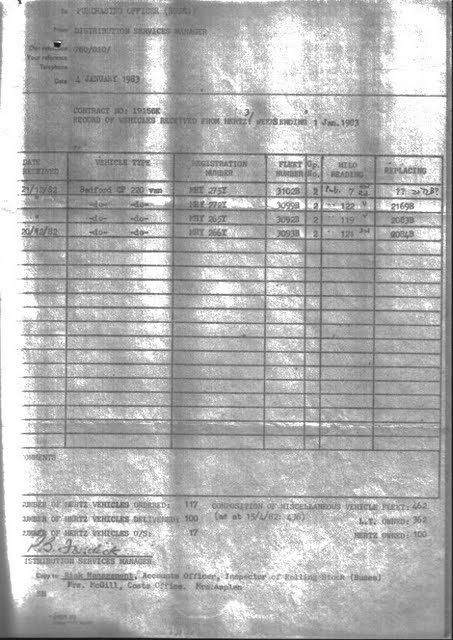 To PURCHASING OFFICER (BUSES)
From DISTRIBUTION SERVICES MANAGER
Our reference 780/810/
Your reference
Telephone
Date 4 JANUARY 1983
CONTRACT NO:
RECORD OF VEHICLES RECEIVED FROM HERTZ: WEEK ENDING 1 Jan. 1983
DATE RECEIVED VEHICLE TYPE REGISTRATION NUMBER FLEET NUMBER Gp. No. MILO READING REPLACING
21/12/82 Bedford CF 220 van 275Y 3102B 2 7
" -do- -do- 272Y 3099B 2 122 2169B
" -do- -do- 265Y 3092B 2 119 2083B
20/12/82 -do- -do- 266Y 3093B 2 121 2084B
COMMENTS
NUMBER OF HERTZ VEHICLES ORDERED: 117 COMPOSITION OF MISCELLANEOUS VEHICLE FLEET: 462
NUMBER OF HERTZ VEHICLES DELIVERED: 100 (as at 15/4/82: 430) L.T. OWNED: 362
NUMBER OF HERTZ VEHICLES O/S: 17 HERTZ OWNED: 100
DISTRIBUTION SERVICES MANAGER
Copy to Risk Management, Accounts Officer, Inspector of Rolling Stock (Buses)
Mrs. McGill, Costs Office.